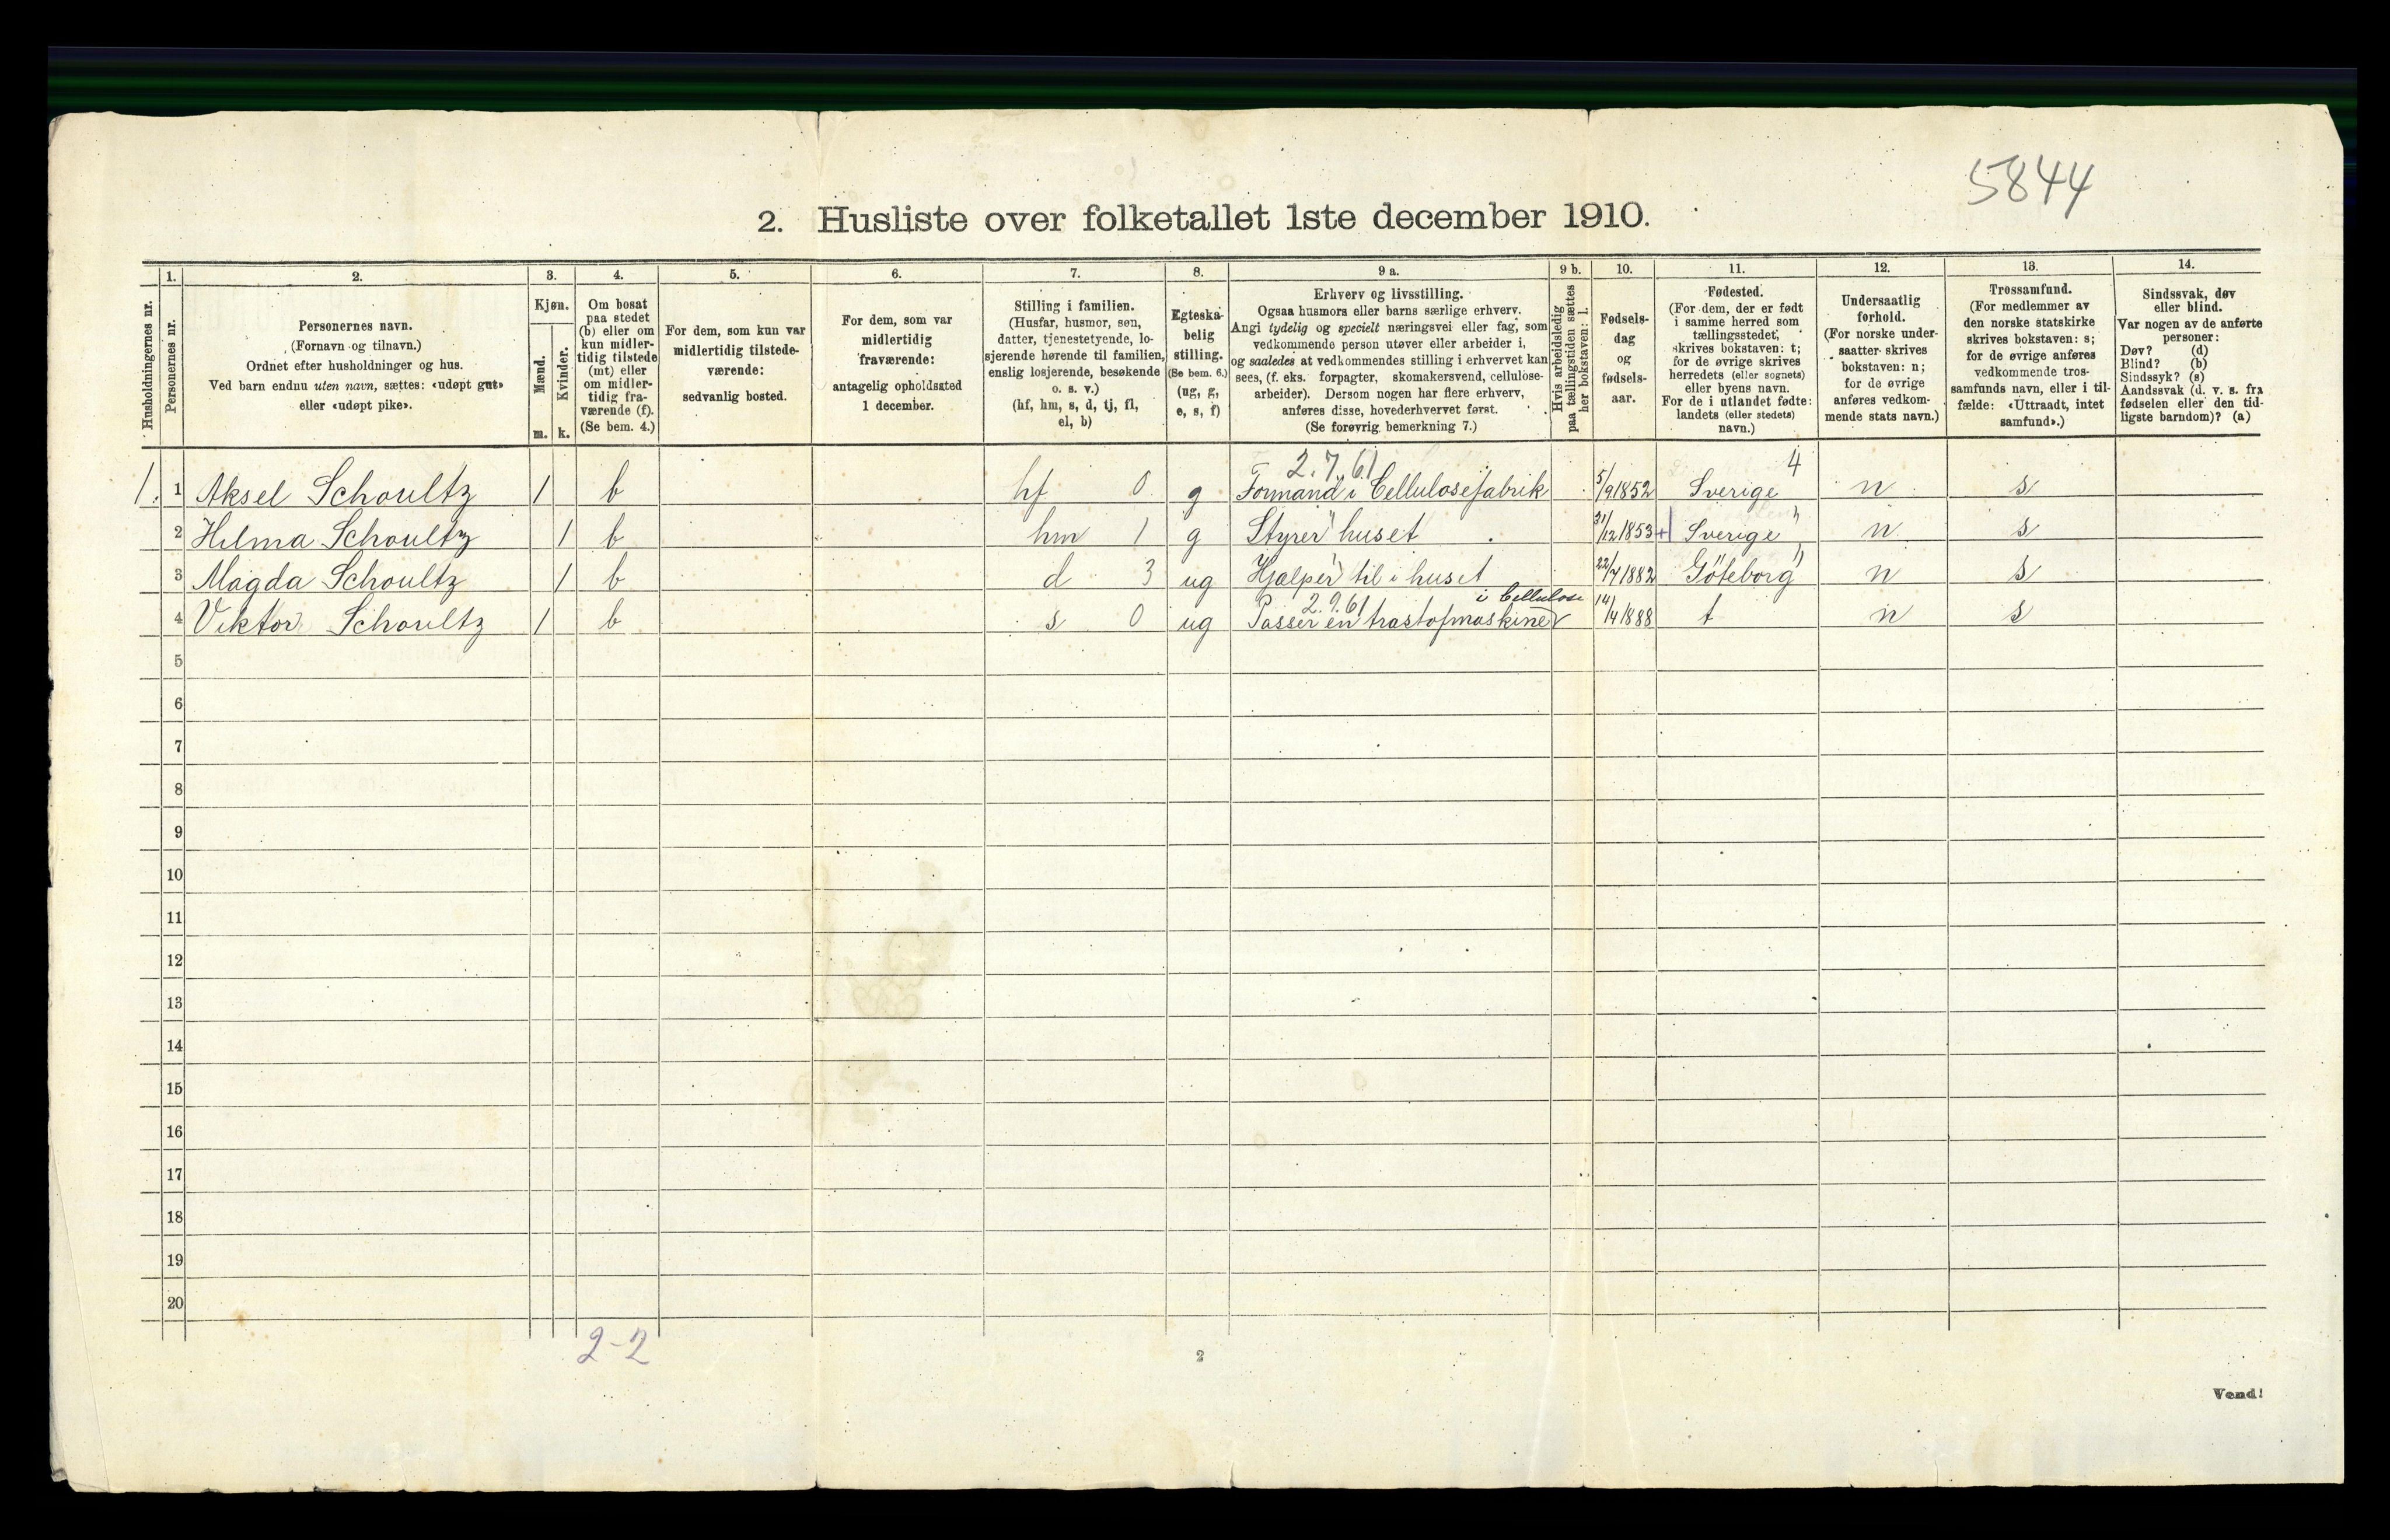 5844
2. Husliste over folketallet 1ste december 1910.
Husholdningernes nr.
1.
Personernes nr.
2.
Personernes navn.
(Fornavn og tilnavn.)
Ordnet efter husholdninger og hus.
Ved barn endnu uten navn, sættes: «udøpt gut»
eller «udøpt pike».
3.
Kjøn.
Mænd.
Kvinder.
m. k.
4.
Om bosat
paa stedet
(b) eller om
kun midler-
tidig tilstede
(mt) eller
om midler-
tidig fra-
værende (f).
(Se bem. 4.)
5.
For dem, som kun var
midlertidig tilstede-
værende:
sedvanlig bosted.
6.
For dem, som var
midlertidig
fraværende:
antagelig opholdssted
1 december.
7.
Stilling i familien.
(Husfar, husmor, søn,
datter, tjenestetyende, lo-
sjerende hørende til familien,
enslig losjerende, besøkende
o. s. v.)
(hf, hm, s, d, tj, fl,
el, b)
8.
Egteska-
belig
stilling.
(Se bem. 6.)
(ug, g,
e, s, f)
9 a.
Erhverv og livsstilling.
Ogsaa husmors eller barns særlige erhverv.
Angi tydelig og specielt næringsvei eller fag, som
vedkommende person utøver eller arbeider i,
og saaledes at vedkommendes stilling i erhvervet kan
sees, (f. eks. forpagter, skomakersvend, cellulose-
arbeider). Dersom nogen har flere erhverv,
anføres disse, hovederhvervet først.
(Se forøvrig bemerkning 7.)
9 b.
Hvis arbeidsledig
paa tællingstiden sættes
her bokstaven: l.
10.
Fødsels-
dag
og
fødsels-
aar.
11.
Fødested.
(For dem, der er født
i samme herred som
tællingsstedet,
skrives bokstaven: t;
for de øvrige skrives
herredets (eller sognets)
eller byens navn.
For de i utlandet fødte:
landets (eller stedets)
navn.)
12.
Undersaatlig
forhold.
(For norske under-
saatter skrives
bokstaven: n;
for de øvrige
anføres vedkom-
mende stats navn.)
13.
Trossamfund.
(For medlemmer av
den norske statskirke
skrives bokstaven: s;
for de øvrige anføres
vedkommende tros-
samfunds navn, eller i til-
fælde: «Uttraadt, intet
samfund».)
14.
Sindssvak, døv
eller blind.
Var nogen av de anførte
personer:
Døv? (d)
Blind? (b)
Sindssyk? (s)
Aandssvak (d. v. s. fra
fødselen eller den tid-
ligste barndom)? (a)
2.7.61 4
1. 1 Aksel Schoultz 1 b hf 0 g Formand i Cellulosefabrik 5/9 1852 Sverige n s
2 Hilma Schoultz 1 b hm 1 g Styrer huset 31/12 1853 Sverige " n s
3 Magda Schoultz 1 b d 3 ug Hjælper til i huset 22/7 1882 Göteborg " n s
2.9.61 i Cellulose
4 Viktor Schoultz 1 b s 0 ug Passer en trastofmaskine 14/4 1888 t n s
5
6
7
8
9
10
11
12
13
14
15
16
17
18
19
20
2-2
2
Vend!